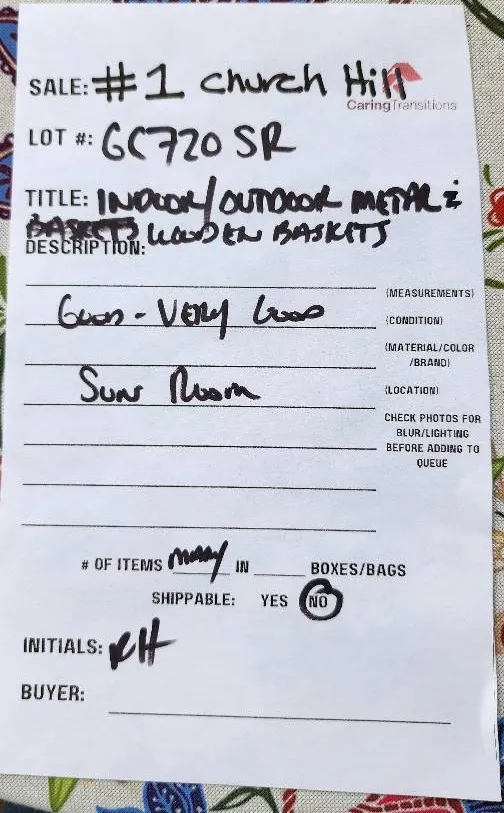 SALE: #1 Church Hill
CaringTransitions
LOT #: GC720 SR
TITLE: INDOOR/OUTDOOR METAL &
BASKETS WOODEN BASKETS
DESCRIPTION:
(MEASUREMENTS)
Good - Very Good (CONDITION)
(MATERIAL/COLOR
/BRAND)
Sun Room (LOCATION)
CHECK PHOTOS FOR
BLUR/LIGHTING
BEFORE ADDING TO
QUEUE
# OF ITEMS many IN BOXES/BAGS
SHIPPABLE: YES NO
INITIALS: RH
BUYER: